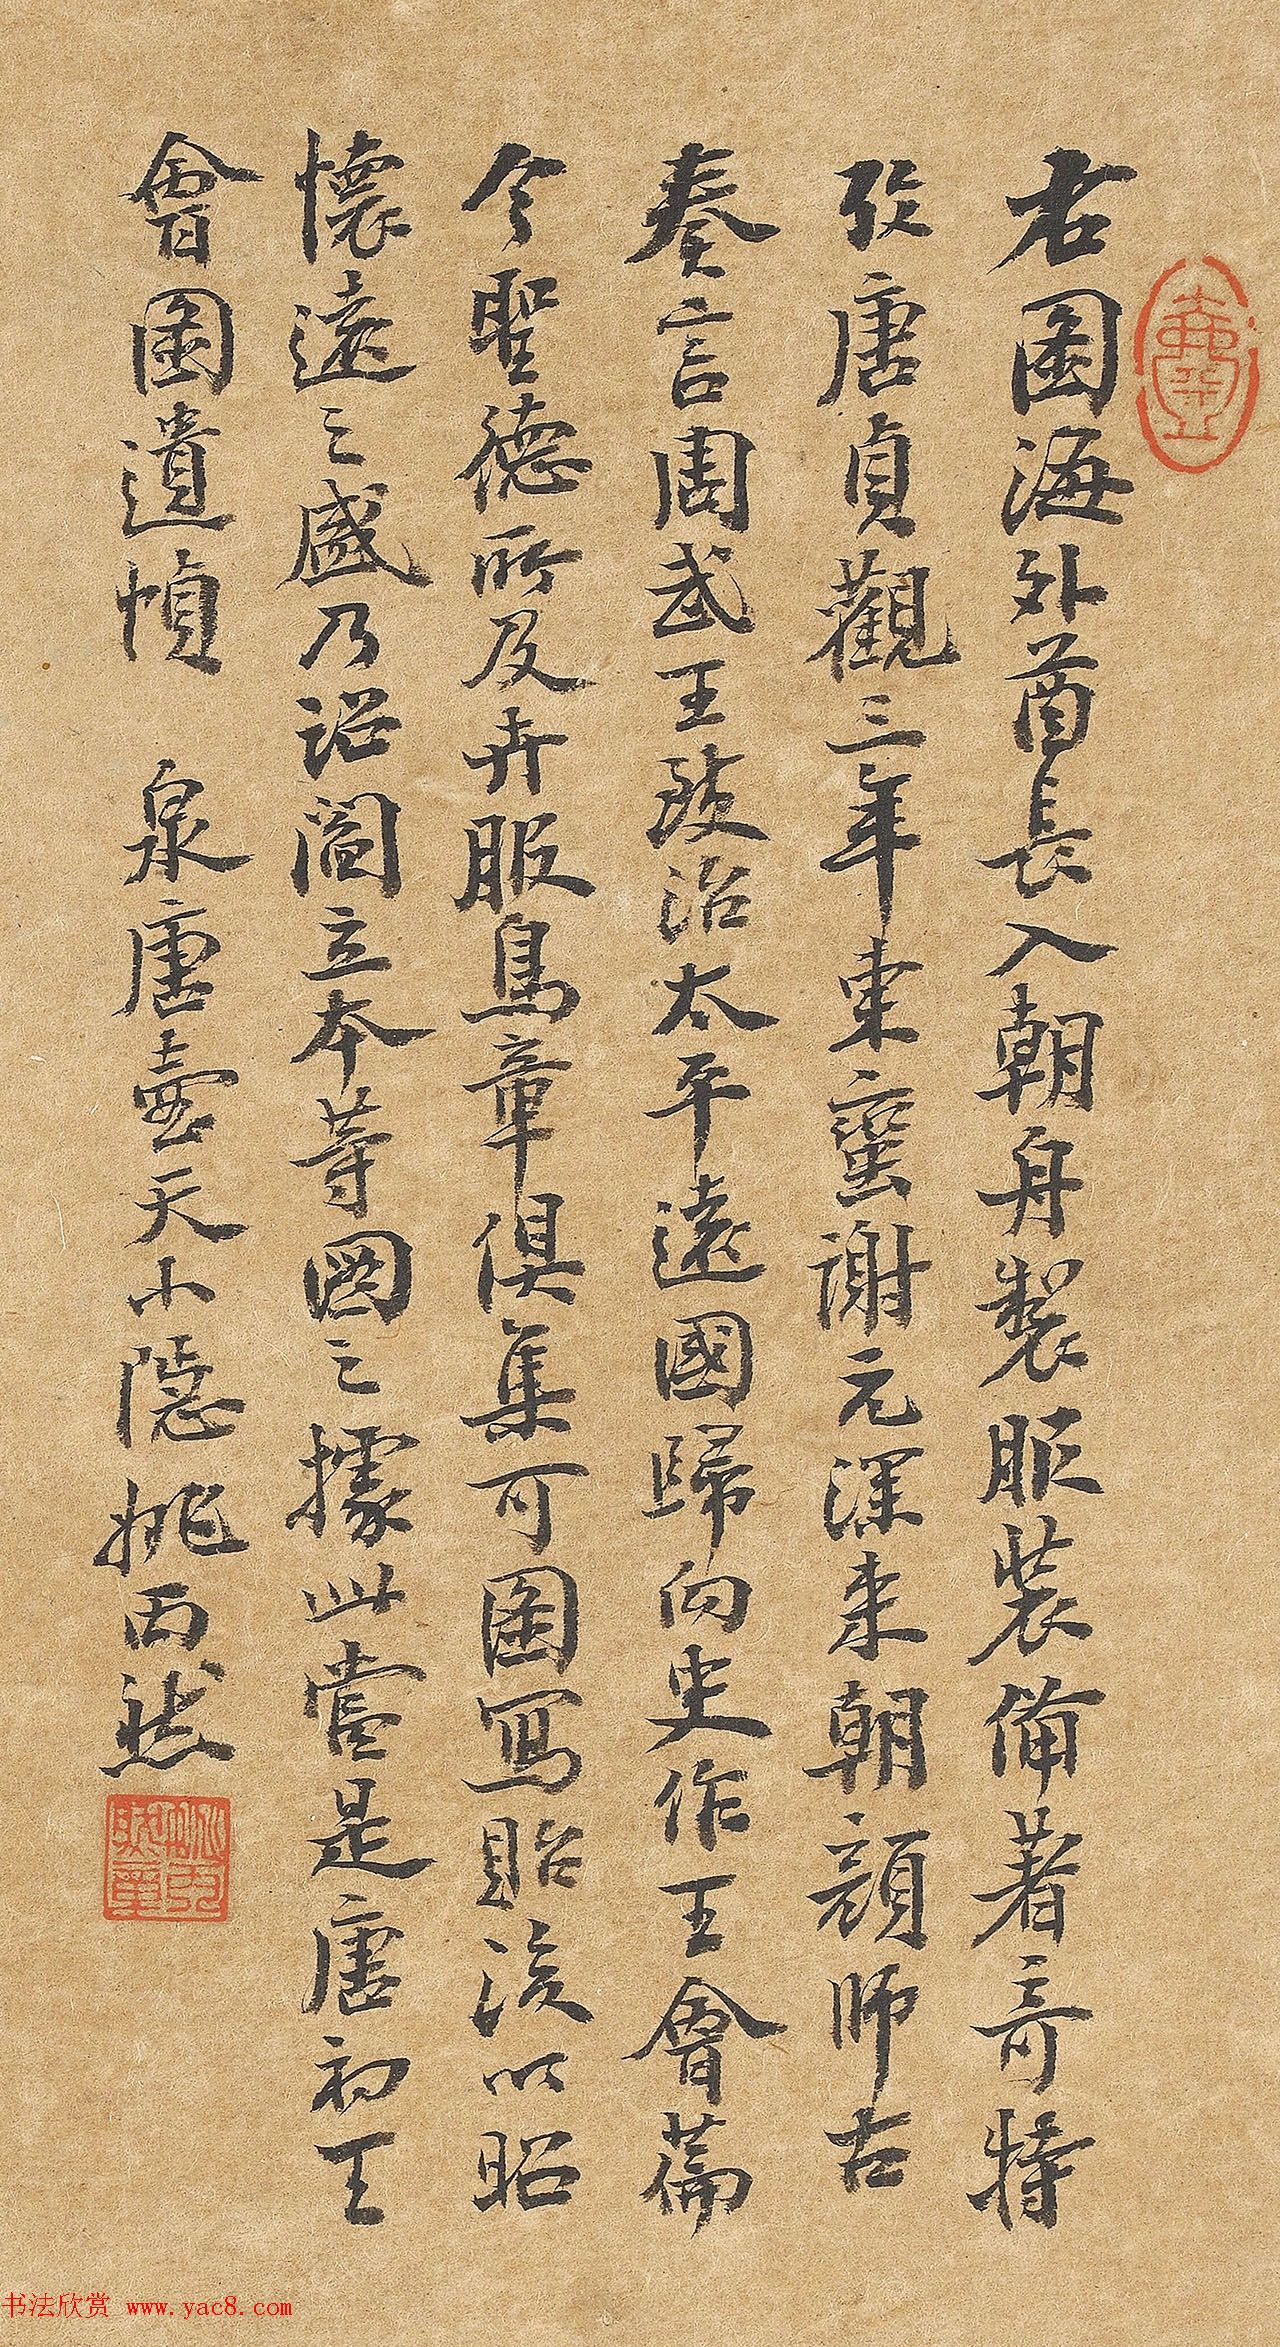 右圖海外酋長入朝舟製服裝備著奇特
攷唐貞觀三年東蠻謝元深來朝顏師古
奏言周武王致治太平遠國歸向史作王會篇
今聖德所及卉服鳥章俱集可圖寫貽後以昭
懷遠之盛乃詔閻立本等圖之據此當是唐初王
會圖遺幀 泉唐壺天小隱姚丙然
书法欣赏 www.yac8.com